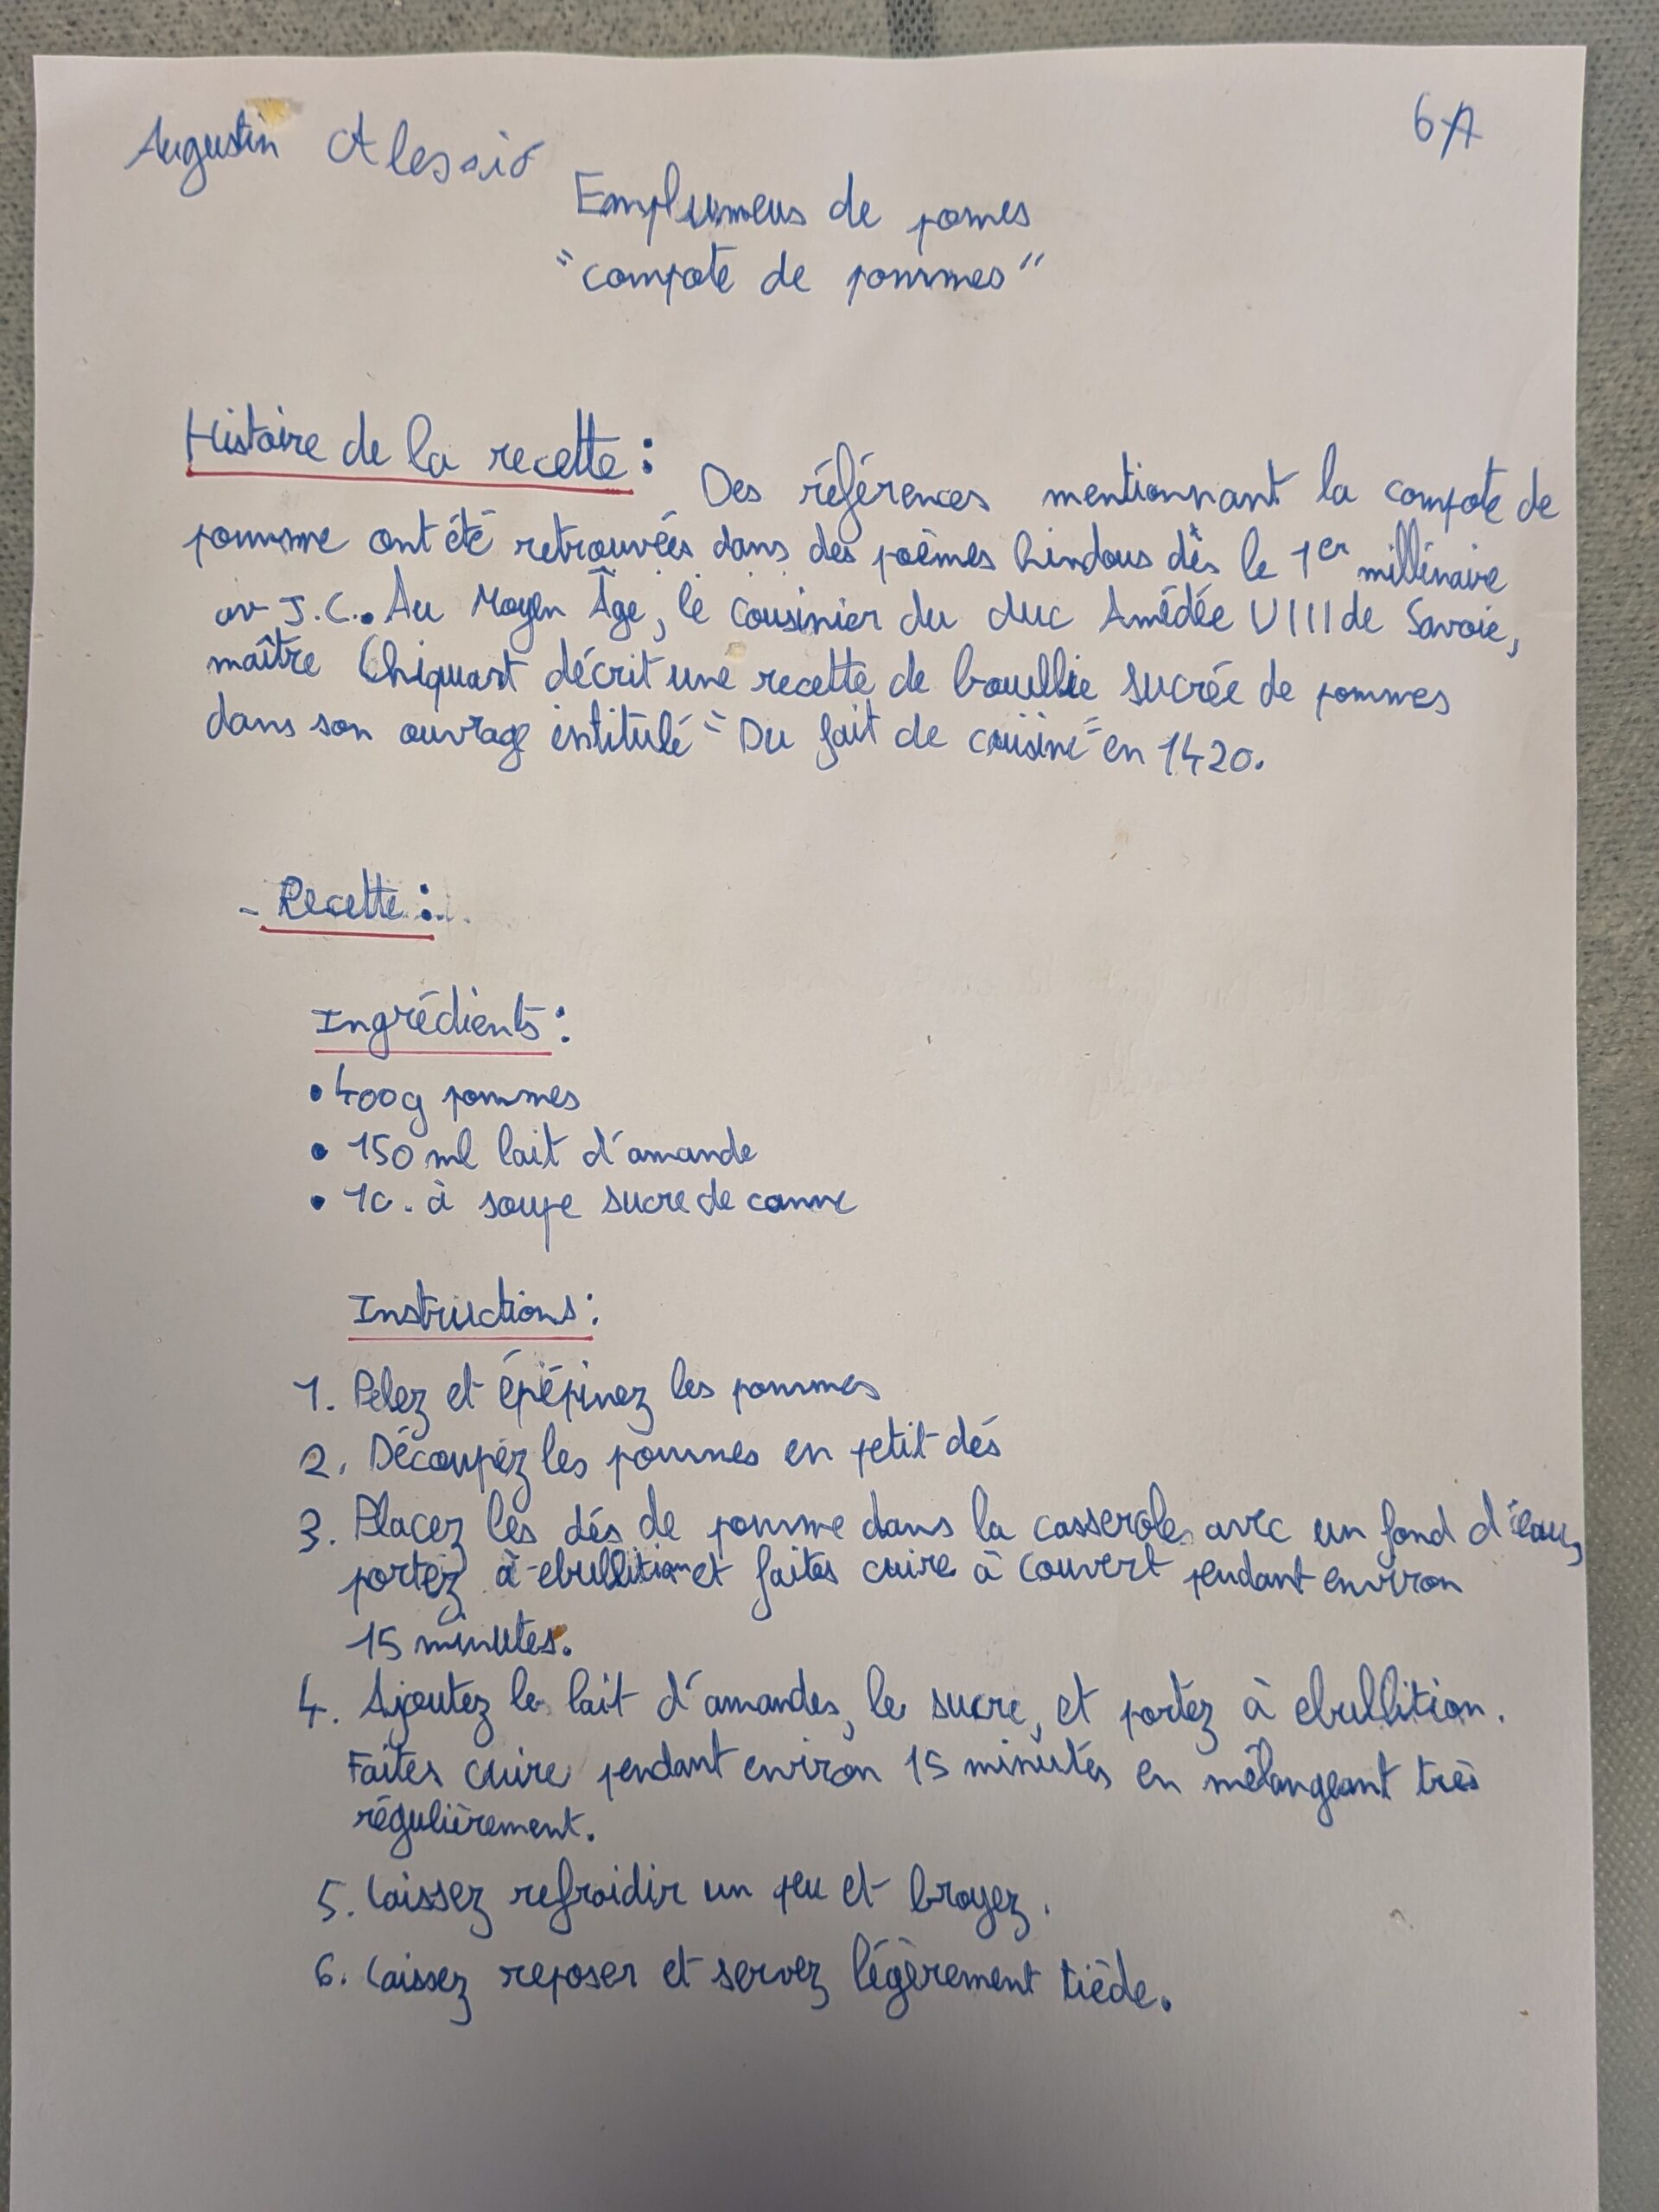 Augustin Alessio
6A
Emplumeus de pomes
"compote de pommes"
Histoire de la recette : Des références mentionnant la compote de
pomme ont été retrouvées dans des poèmes hindous dès le 1er millénaire
av J.C.. Au Moyen Âge, le cousinier du duc Amédée VIII de Savoie,
maître Chiquart décrit une recette de bouillie sucrée de pommes
dans son ouvrage intitulé "Du fait de cuisine" en 1420.
- Recette :
Ingrédients :
• 400g pommes
• 150 ml lait d'amande
• 1c. à soupe sucre de canne
Instructions :
1. Pelez et épépinez les pommes
2. Découpez les pommes en petit dés
3. Placez les dés de pomme dans la casserole avec un fond d'eau,
portez à ebullition et faites cuire à couvert pendant environ
15 minutes.
4. Ajoutez le lait d'amandes, le sucre, et portez à ebullition.
Faites cuire pendant environ 15 minutes en mélangeant très
régulièrement.
5. Laissez refroidir un peu et broyez.
6. Laissez reposer et servez légèrement tiède.